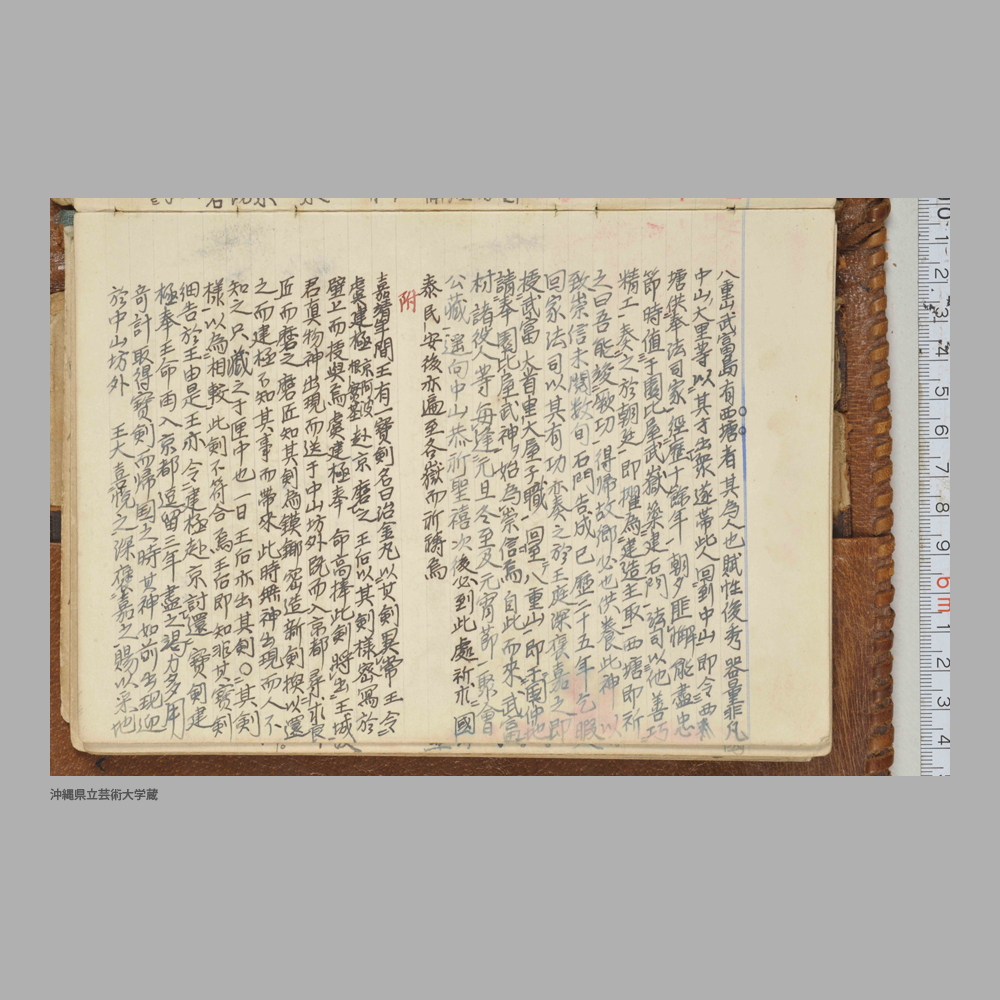 八重山武富島有西塘者其為人也賦性俊秀器量非凡
中山大里等以其才出衆遂帯此人回到中山即令西塘
塘供奉法司家經歴十餘年朝夕匪懈能盡忠
節時值于園比屋武嶽築建石門法司以他善巧
精工奏之於朝廷即擢為建造主取西塘即祈
之曰吾能竣敏功得帰故郷必也供養此神以
致崇信未閲数旬石門告成已歴二十五年乞暇
回家法司以其有功亦奏之於王庭深褒嘉之即
授武富大首里大屋子職回至八重山即于園仲地
請奉園比屋武神始為崇信焉自此而來武富
村諸役人等毎逢元旦冬至及元宵節一聚會
公藏遥向中山恭祈聖禧次後必到此處祈求國
泰民安後亦遍至各嶽而祈祷焉
附
嘉靖年間王有一寶剣名曰治金丸以其剣異常王令
虞建極京阿波根實基赴京磨之王后以其剣様密寫於
壁上而授與焉虞建極奉命高捧此剣将出王城
君真物神出現而送于中山坊外既而入京都尋求良
匠而磨之磨匠知其剣為鏌鋣密造新剣換以還
之而建極不知其事而帯來此時無神出現而人不
知之只藏之于匣中也一日王后亦出其剣〇其剣
様以為相較此剣不符合焉王后即知非其寶剣
細告於王由是王亦令建極赴京討還寶剣建
極奉王命再入京都逗留三年盡之竭力多用
奇計取得寶剣而帰国之時其神如前出現迎
於中山坊外王大喜悦之深褒嘉之賜以采地
10 1 2 3 4 5 6 7 8 9 6m 1 2 3 4
沖縄県立芸術大学蔵